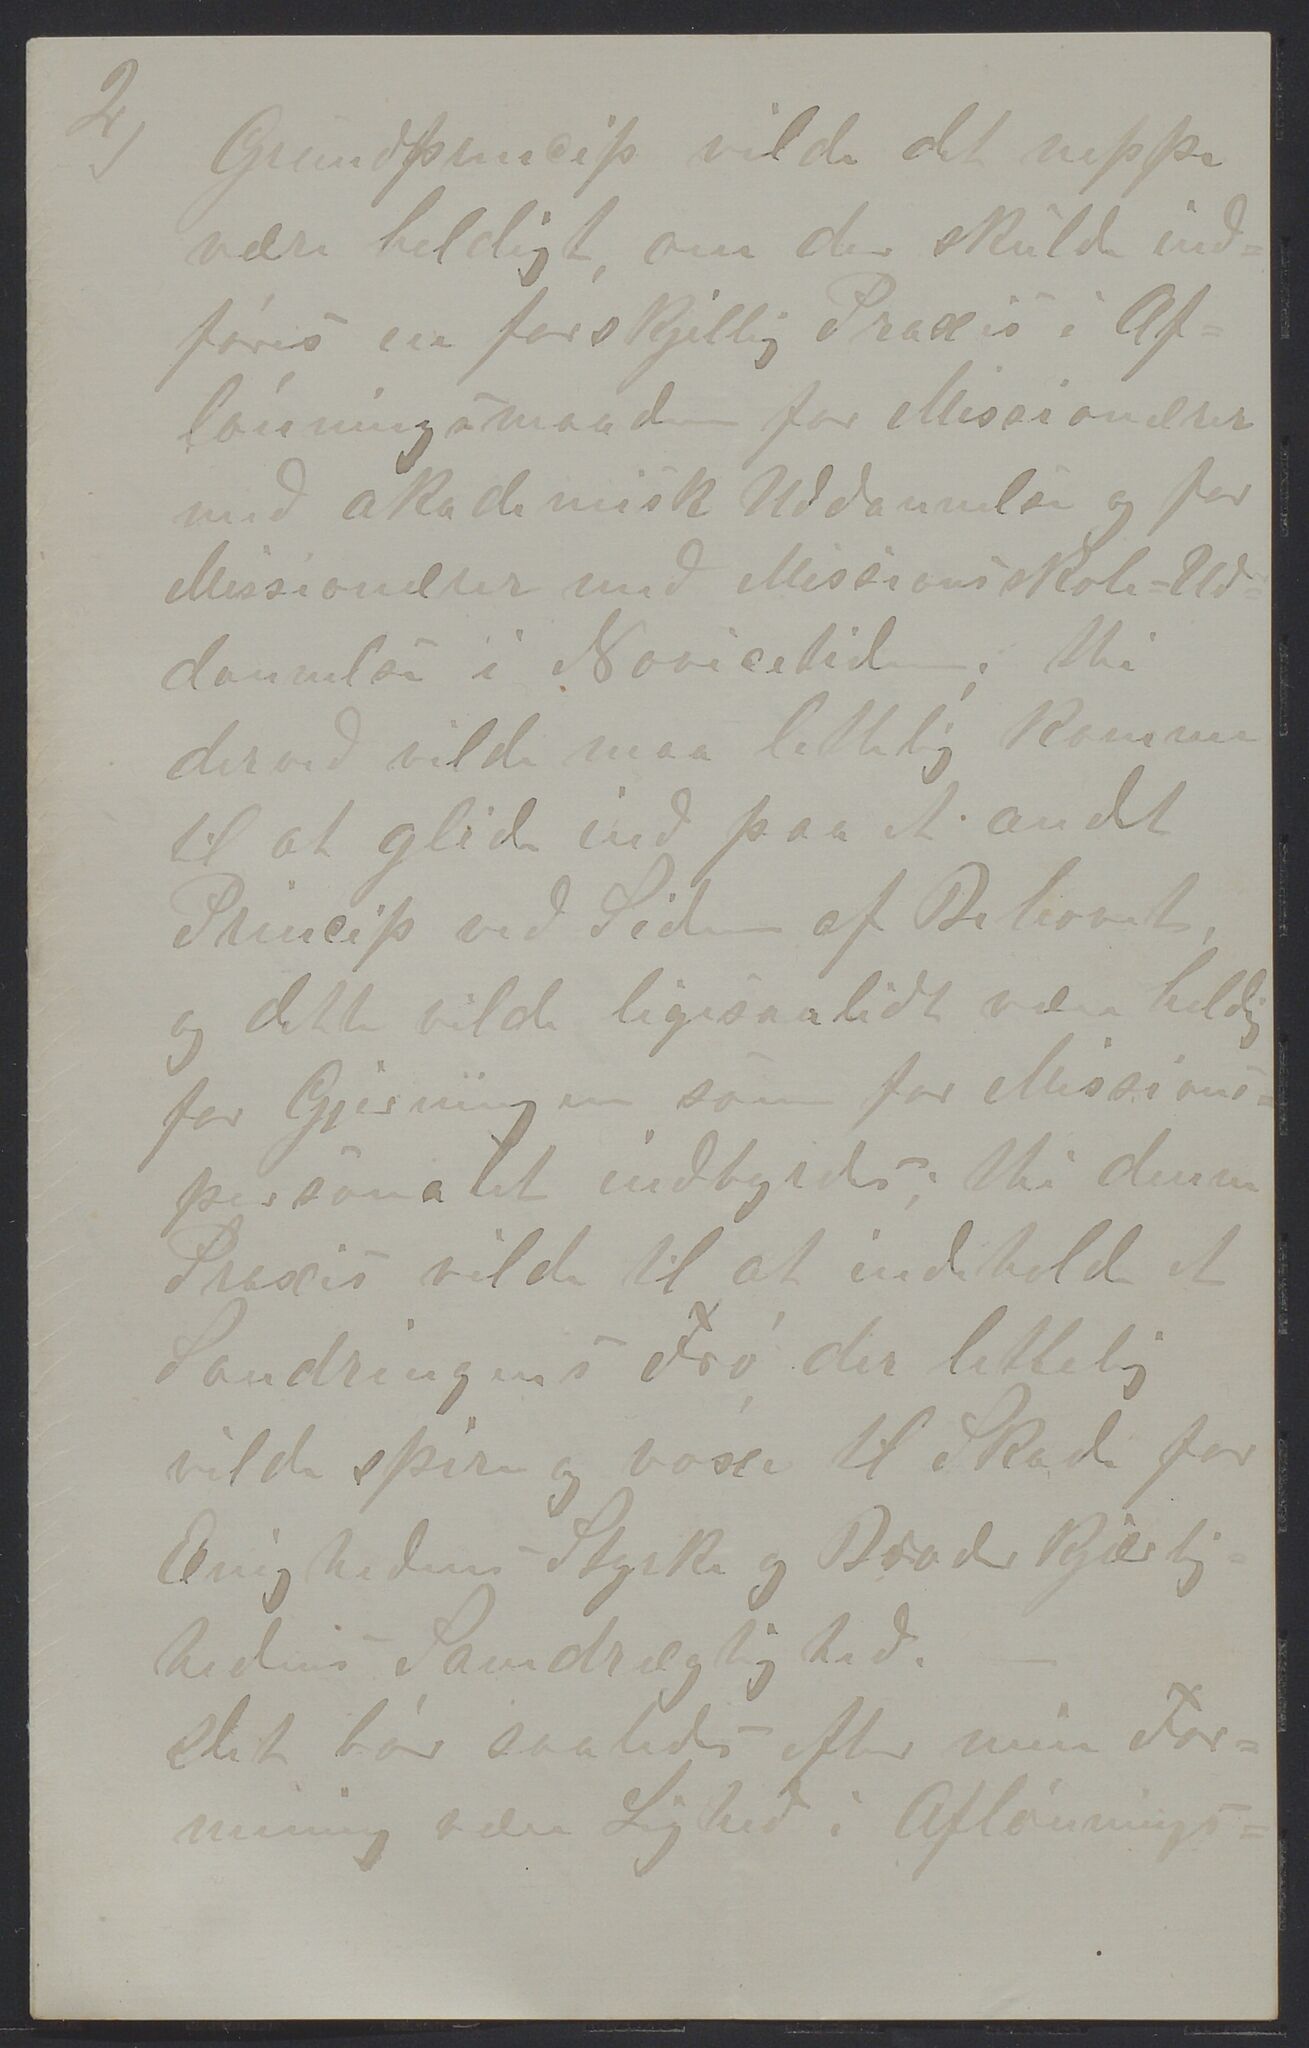 2)
Grundprincip vilde det neppe
være heldigt, om der skulde ind=
føres en forskjellig Praxis i Af=
lønningsmaaden for Missionærer
med akademisk Uddannelse og for
Missionærer med Missionsskole=Ud=
dannelse i Novicetiden; thi
derved vilde maa lettelig komme
til at glide ind paa et andet
Princip ved Siden af Behovet,
og dette vilde ligesaalidt være heldig
for Gjerningen som for Missions=
personalet indbyrdes; thi denne
Praxis vilde til at indeholde et
Søndringens Frø der lettelig
vilde spire og voxe til Skade for
Enighedens Styrke og Broderkjærlig=
hedens Samdrægtighed. —
Det bør saaledes efter min For=
mening være Lighed i Aflønnings=